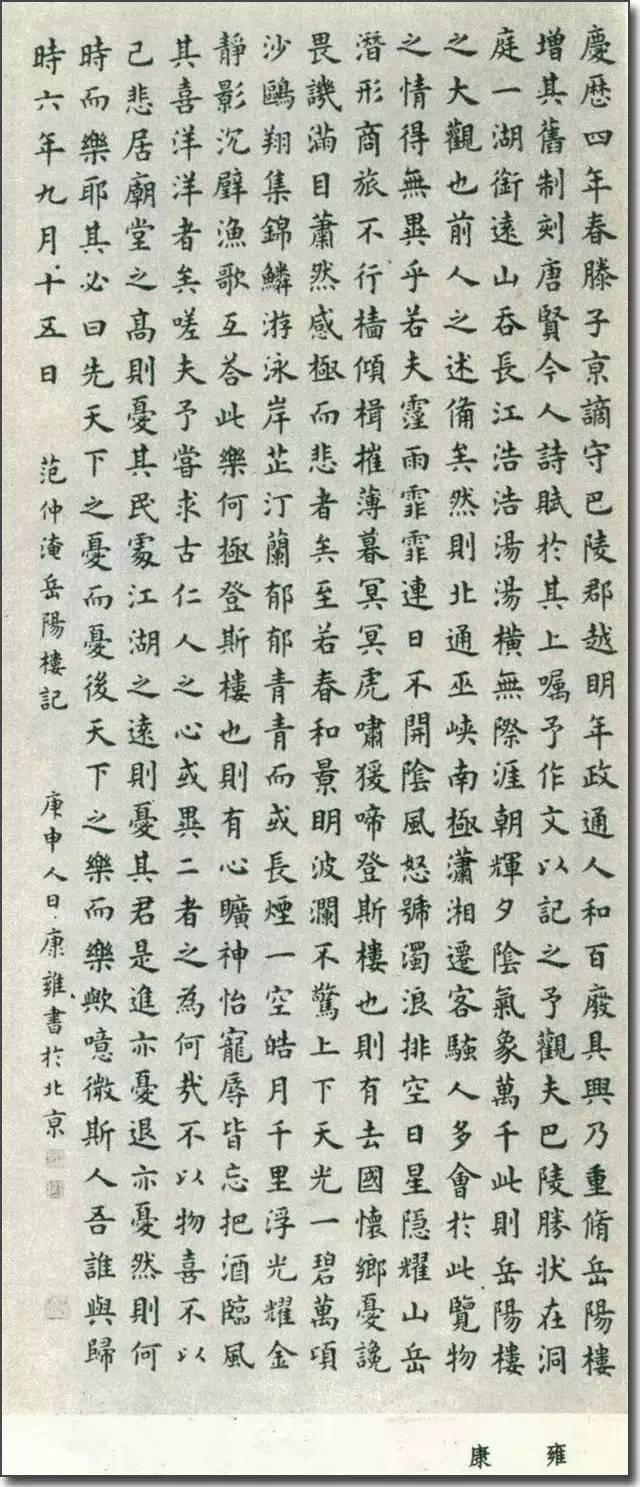 慶歴四年春滕子京謫守巴陵郡越明年政通人和百廢具興乃重脩岳陽樓
增其舊制刻唐賢今人詩賦於其上嘱予作文以記之予觀夫巴陵勝状在洞
庭一湖銜遠山吞長江浩浩湯湯橫無際涯朝輝夕陰氣象萬千此則岳陽樓
之大觀也前人之述備矣然則北通巫峽南極瀟湘遷客騷人多會於此覽物
之情得無異乎若夫霪雨霏霏連日不開陰風怒號濁浪排空日星隱耀山岳
潛形商旅不行檣傾楫摧薄暮冥冥虎嘯猨啼登斯樓也則有去國懷鄉憂讒
畏譏滿目蕭然感極而悲者矣至若春和景明波瀾不驚上下天光一碧萬頃
沙鷗翔集錦鱗游泳岸芷汀蘭郁郁青青而或長煙一空皓月千里浮光耀金
靜影沉璧漁歌互荅此樂何極登斯樓也則有心曠神怡寵辱皆忘把酒臨風
其喜洋洋者矣嗟夫予嘗求古仁人之心或異二者之為何哉不以物喜不以
己悲居廟堂之髙則憂其民處江湖之遠則憂其君是進亦憂退亦憂然則何
時而樂耶其必曰先天下之憂而憂後天下之樂而樂歟噫微斯人吾誰與歸
時六年九月十五日 范仲淹岳陽樓記 庚申人日康雍書於北京
康 雍